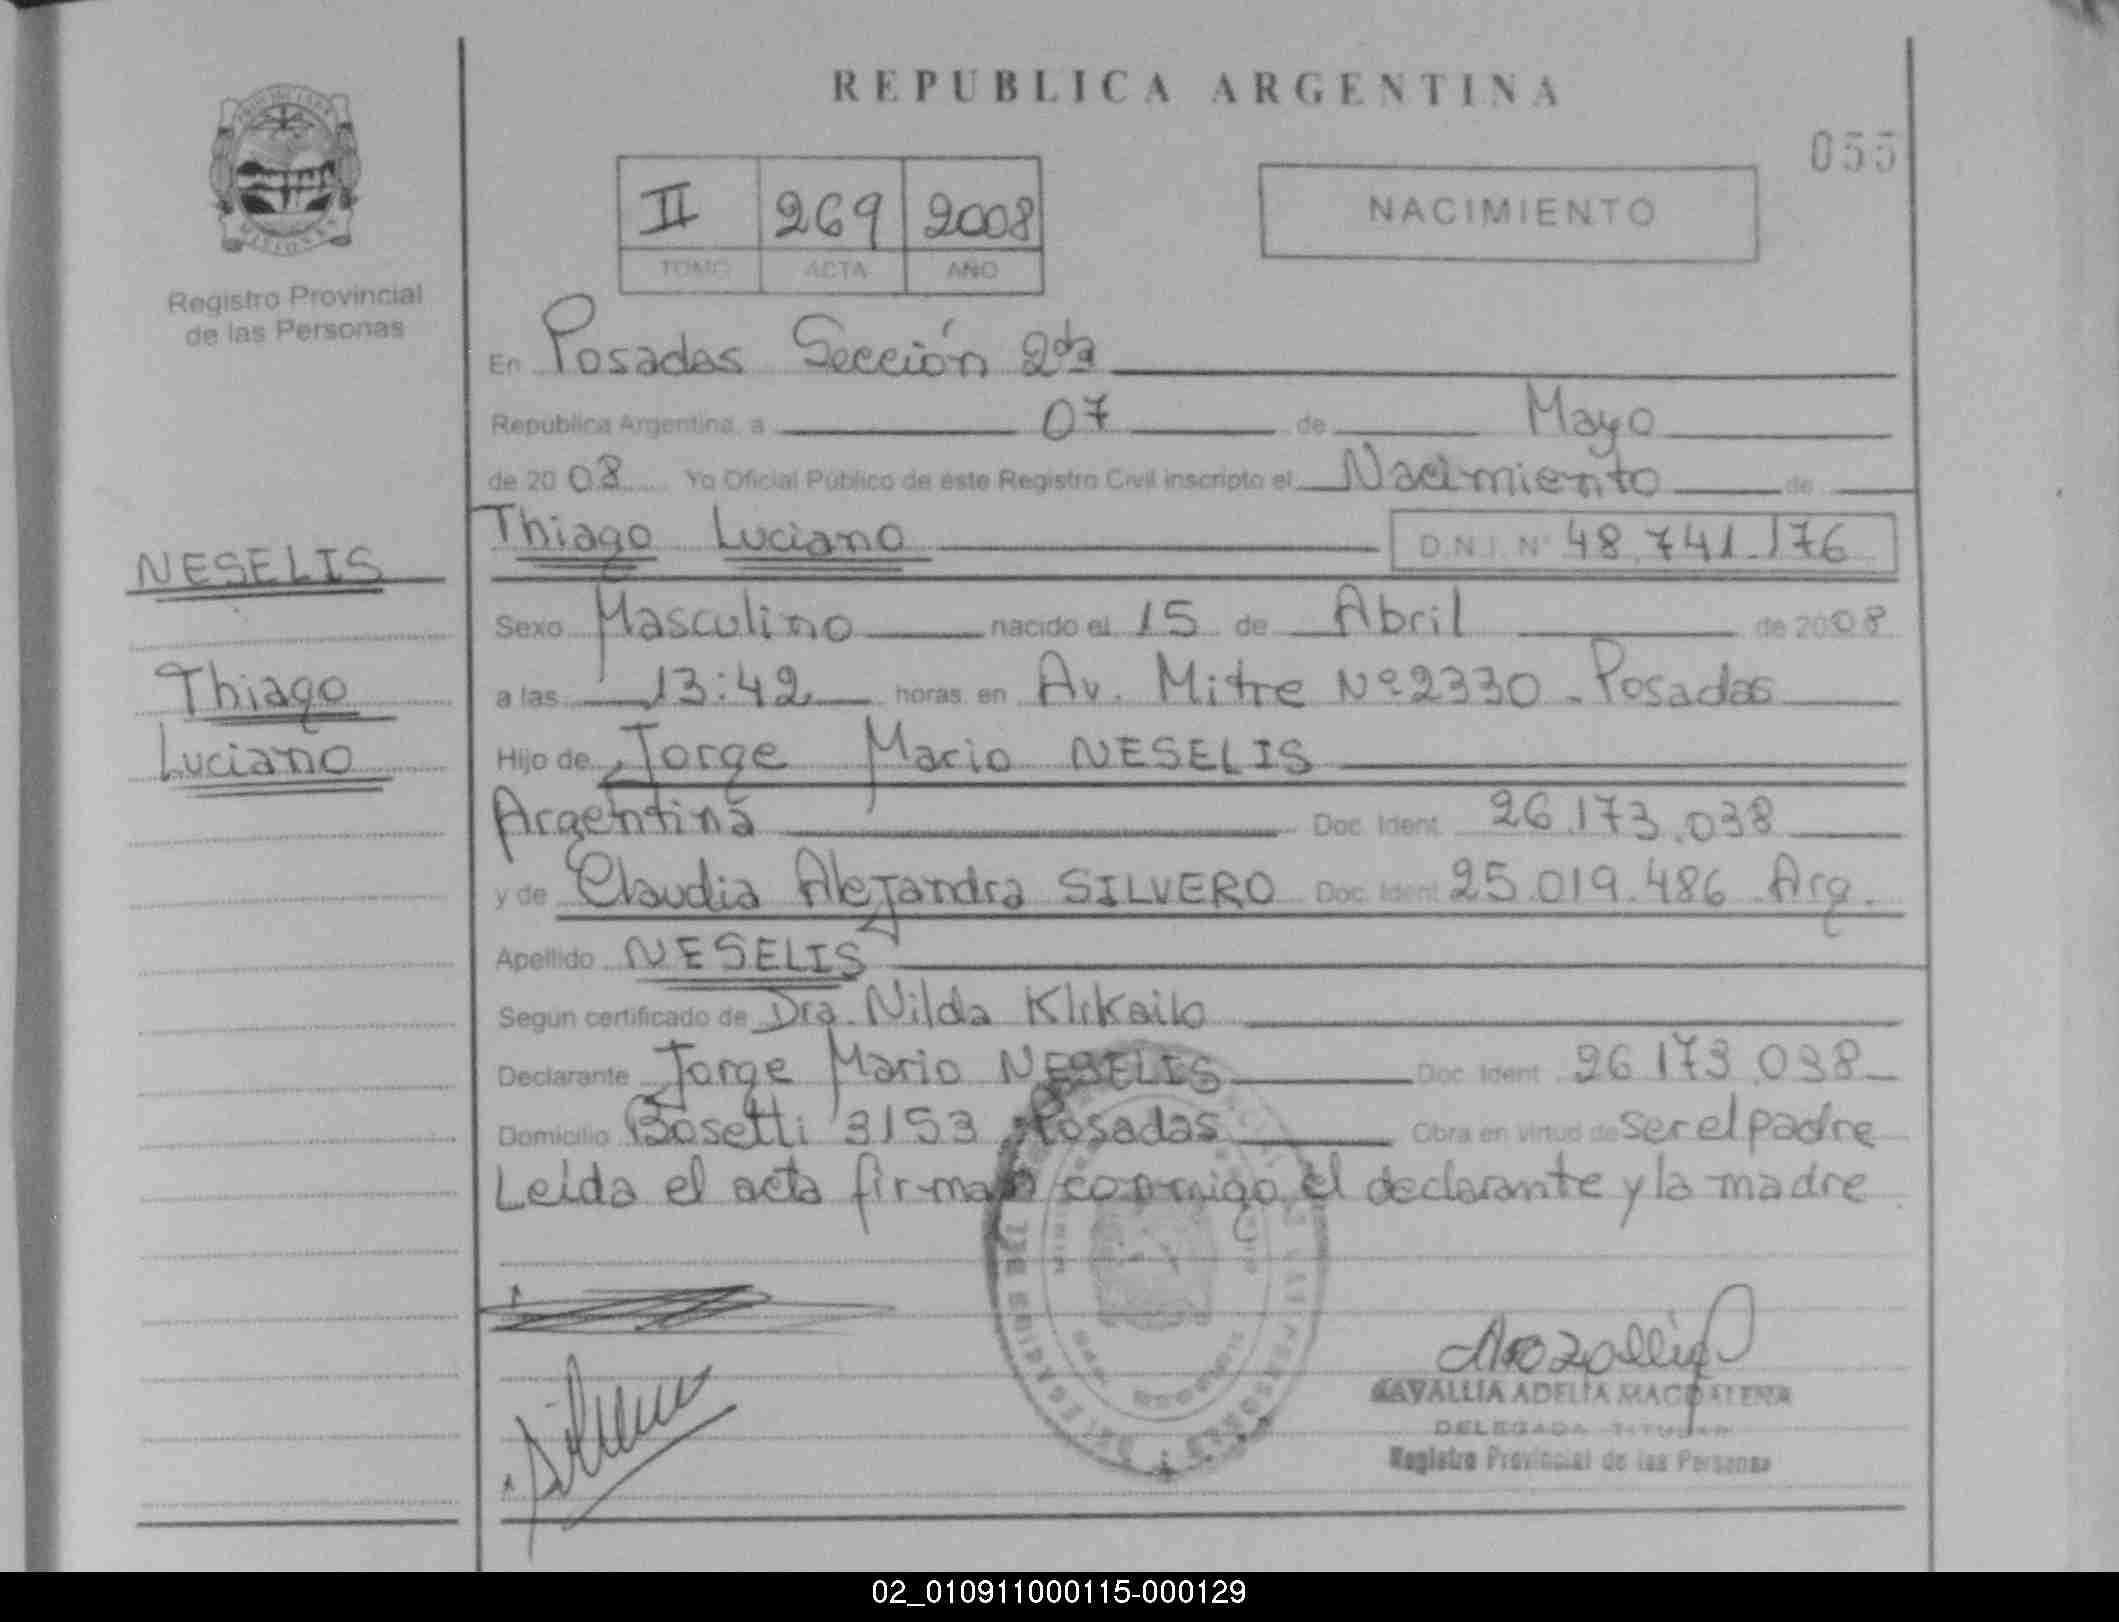 REPUBLICA ARGENTINA
055
II 269 2008
TOMO ACTA AÑO
NACIMIENTO
Registro Provincial
de las Personas
En Posadas Sección 2da
República Argentina, a 07 de Mayo
de 2008 Yo Oficial Público de este Registro Civil inscripto el Nacimiento de
Thiago Luciano D.N.I. Nº 48.741.176
NESELIS
Thiago
Luciano
Sexo Masculino nacido el 15 de Abril de 2008
a las 13:42 horas en Av. Mitre Nº 2330 - Posadas
Hijo de Jorge Mario NESELIS
Argentina Doc. Ident. 26.173.038
y de Claudia Alejandra SILVERO Doc. Ident. 25.019.486 Arg.
Apellido NESELIS
Según certificado de Dra. Nilda
Declarante Jorge Mario NESELIS Doc. Ident. 26.173.038
Domicilio Bosetti 3153 Posadas Obra en virtud de ser el padre
Leída el acta firman conmigo el declarante y la madre
ADELIA MAGDALENA
DELEGADA TITULAR
Registro Provincial de las Personas
02_010911000115-000129